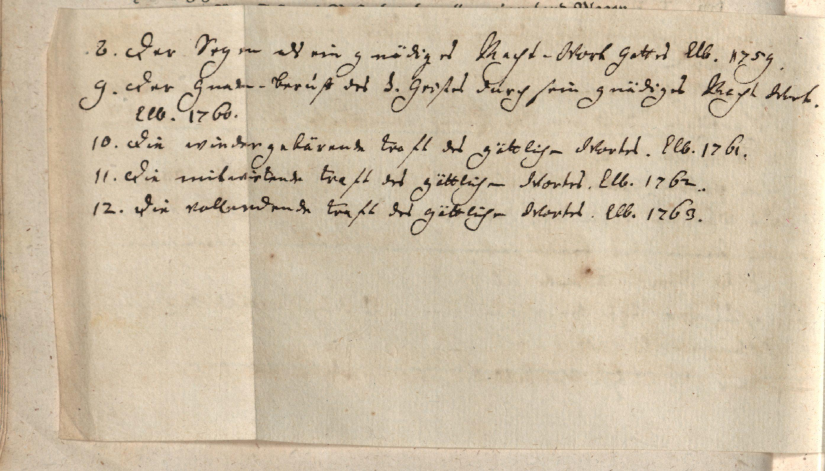 8. Der Segen als ein gnädiges Macht-Wort Gottes Elb. 1759.
9. Der Gnaden-Beruf des H. Geistes durch sein gnädiges Macht Wort.
Elb. 1760.
10. Die wiedergebärende Kraft des göttlichen Wortes. Elb. 1761.
11. Die mitwirkende Kraft des göttlichen Wortes. Elb. 1762.
12. Die vollendende Kraft des göttlichen Wortes. Elb. 1763.